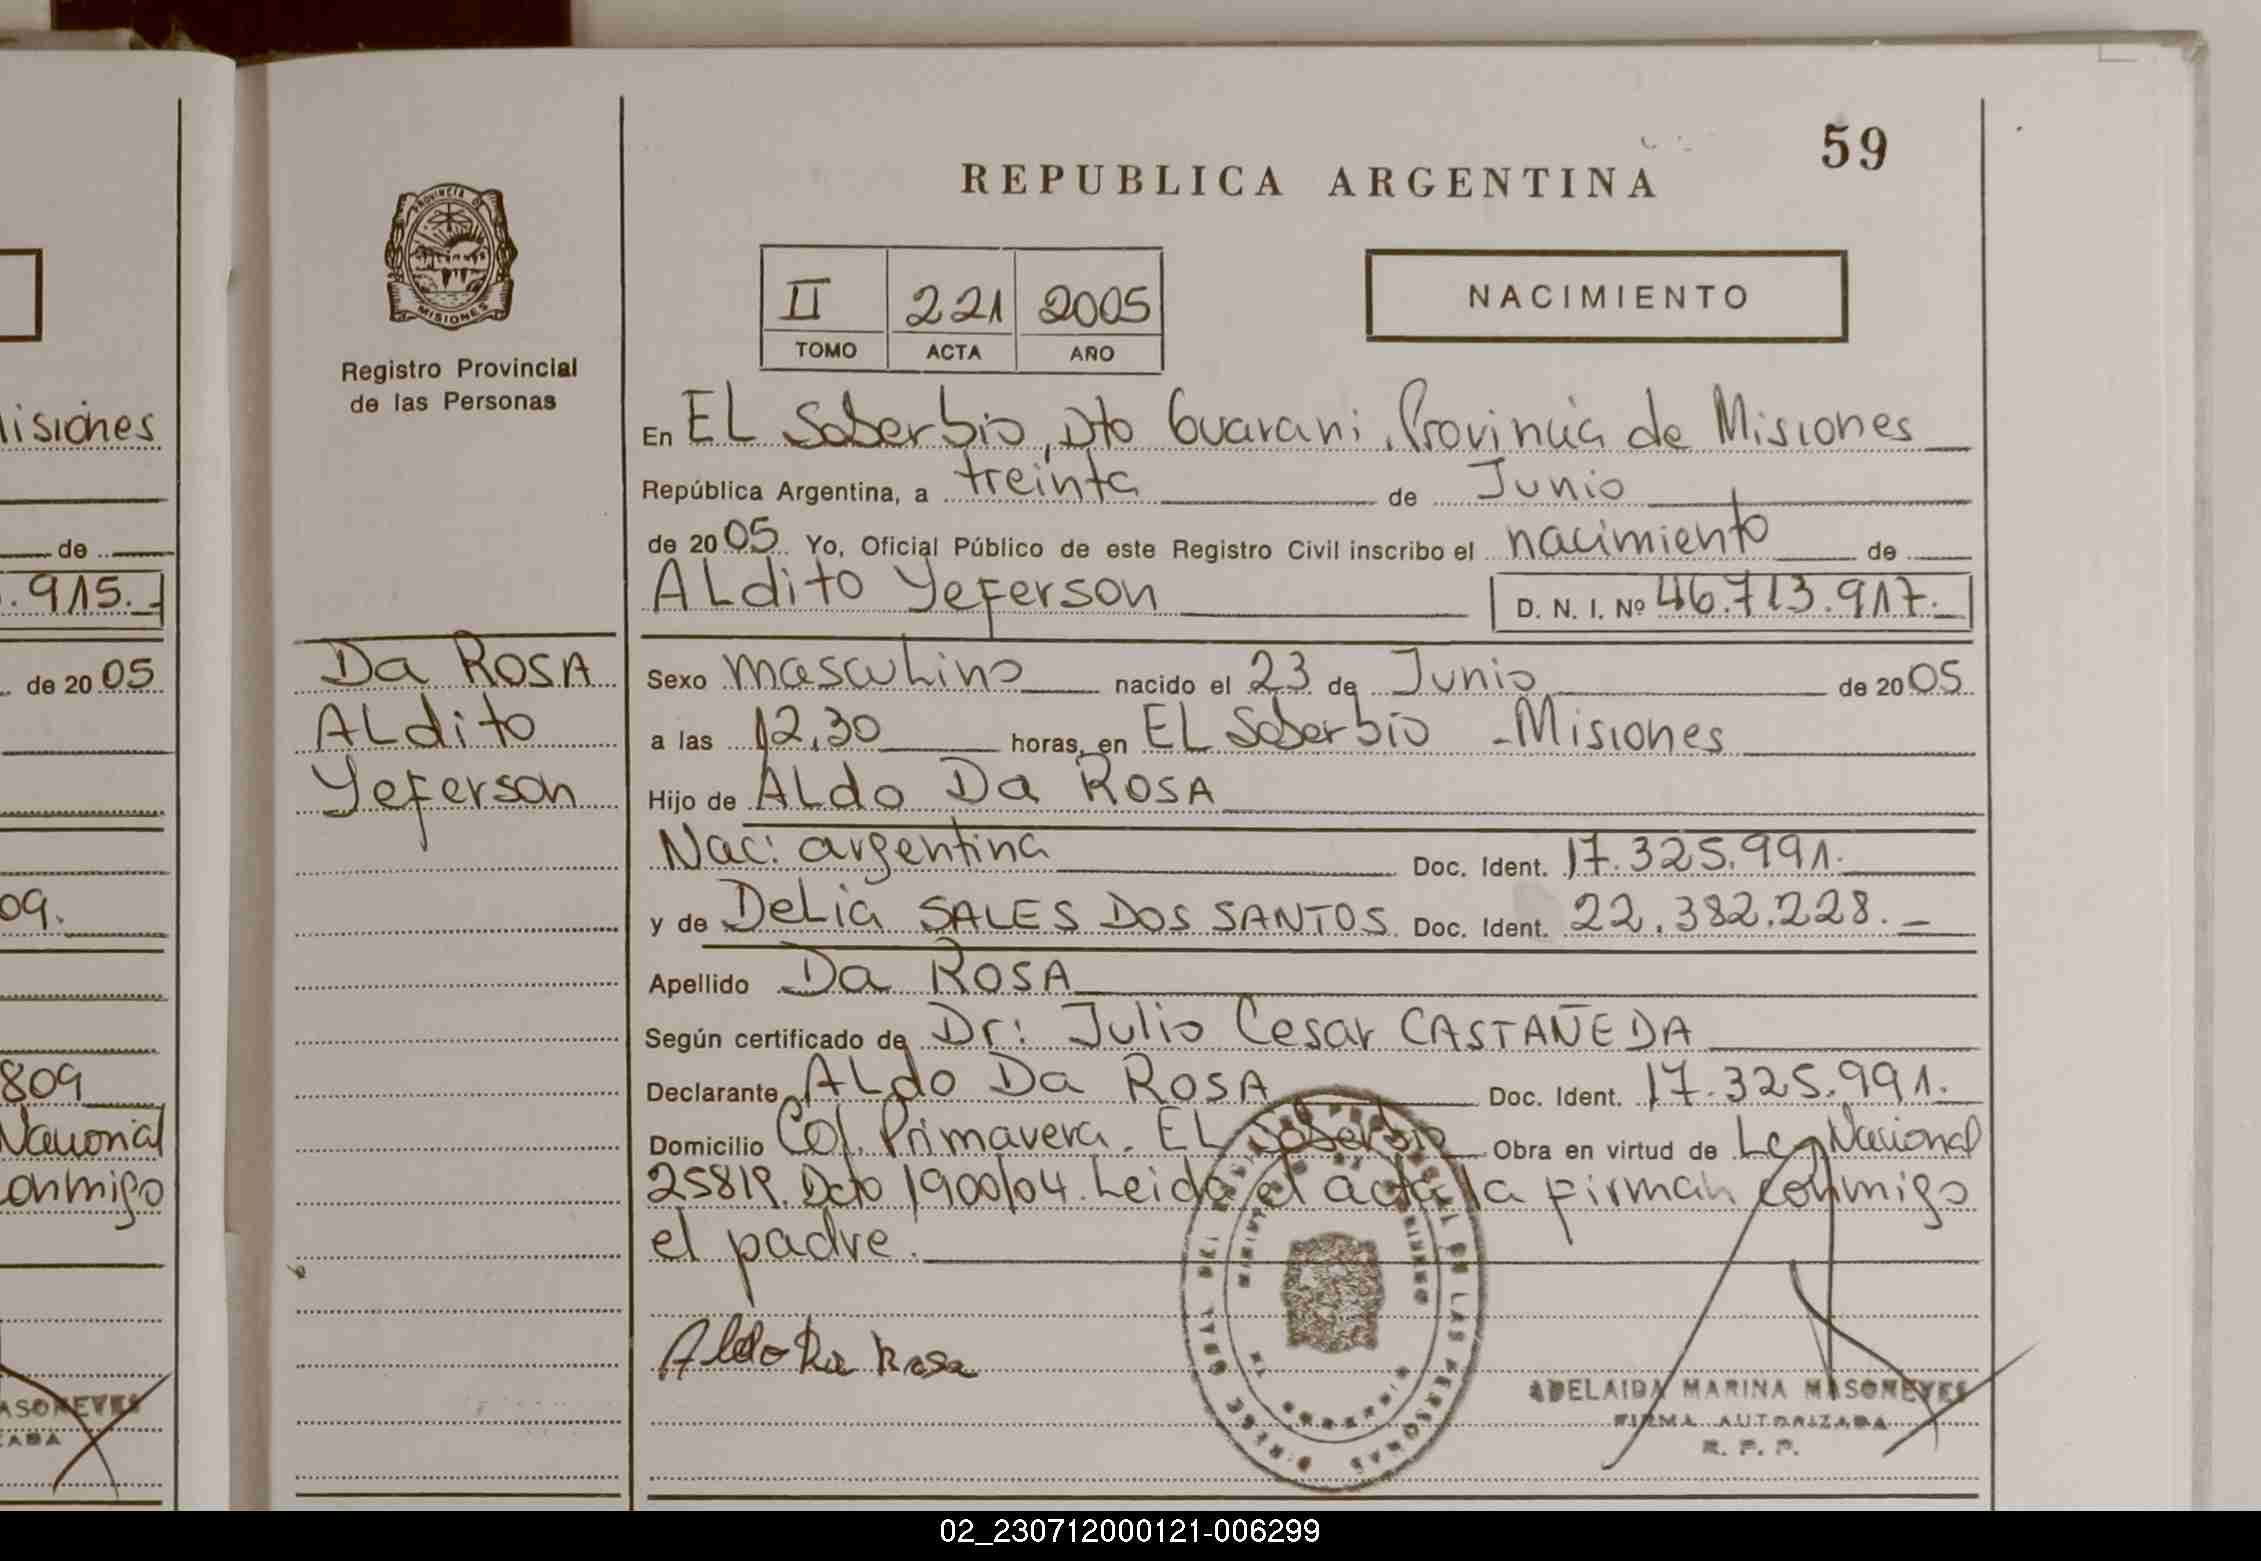 isiones
de
.915.
de 2005
09.
809
Nacional
onmigo
ASONEYES
ZADA
PROVINCIA DE
MISIONES
Registro Provincial
de las Personas
Da ROSA
ALdito
Yeferson
59
REPUBLICA ARGENTINA
II 221 2005
TOMO ACTA AÑO
NACIMIENTO
En EL Soberbio, Dto Guarani, Provincia de Misiones
República Argentina, a treinta de Junio
de 2005 Yo, Oficial Público de este Registro Civil inscribo el nacimiento de
ALdito Yeferson D. N. I. Nº 46.713.917.
Sexo masculino nacido el 23 de Junio de 2005
a las 12,30 horas, en EL Soberbio - Misiones
Hijo de ALdo Da ROSA
Nac: argentina Doc. Ident. 17.325.991.
y de DeLia SALES DOS SANTOS Doc. Ident. 22.382.228.
Apellido Da ROSA
Según certificado de Dr: Julio Cesar CASTAÑEDA
Declarante ALdo Da ROSA Doc. Ident. 17.325.991.
Domicilio Col. Primavera. EL Soberbio Obra en virtud de Ley Nacional
25819. Dcto 1900/04. Leida el acta la firman conmigo
el padre.
Aldo Da Rosa
ADELAIDA MARINA MASONEYES
FIRMA AUTORIZADA
R. P. P.
02_230712000121-006299